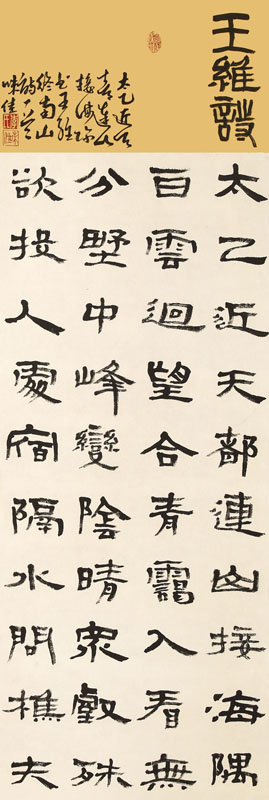 王維詩
太乙近
接海隅
王維
終南山
太乙近天都連山接海隅
白雲迴望合青靄入看無
分野中峰變陰晴眾壑殊
欲投人處宿隔水問樵夫